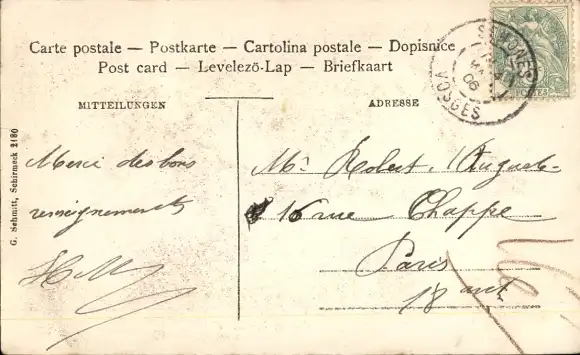 Carte postale — Postkarte — Cartolina postale — Dopisnice
Post card — Levelező-Lap — Briefkaart
MITTEILUNGEN
ADRESSE
G. Schmitt, Schirmeck 2180
Merci des bons
renseignements
Mr. Robert Auguste
16 rue Chappe
Paris
18 arrt
SENONES
06
VOSGES
POSTES